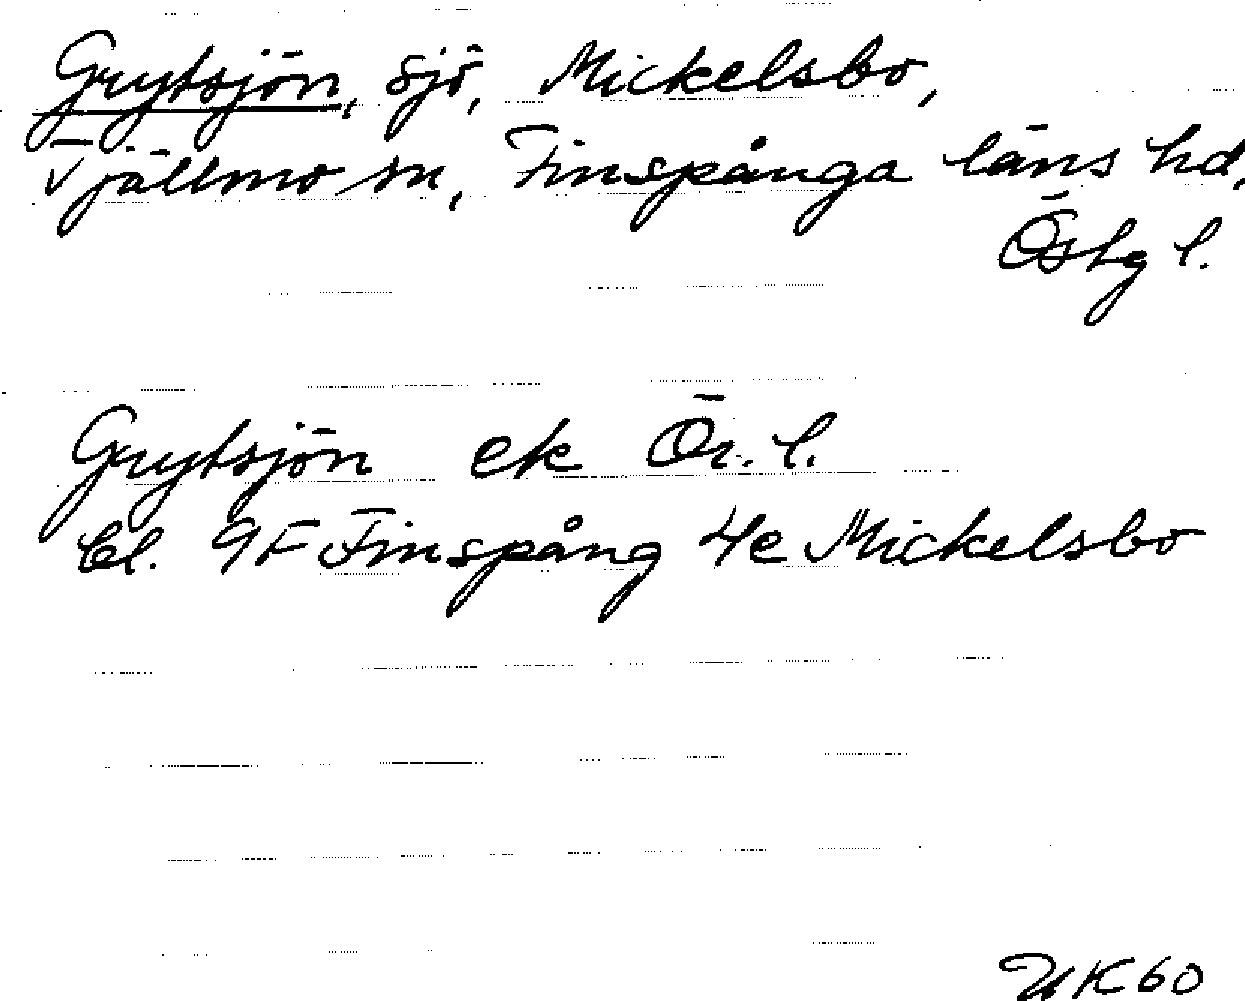 Grytsjön, sjö, Mickelsbo,
Tjällmo sn, Finspånga läns hd,
Östg l.
Grytsjön ek Ör. l.
bl. 9F Finspång 4e Mickelsbo
UK60